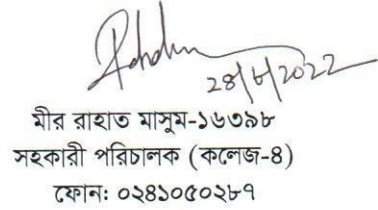 28/6/2022
মীর রাহাত মাসুম-১৬৩৯৮
সহকারী পরিচালক (কলেজ-৪)
ফোন: ০২৪১০৫০২৮৭